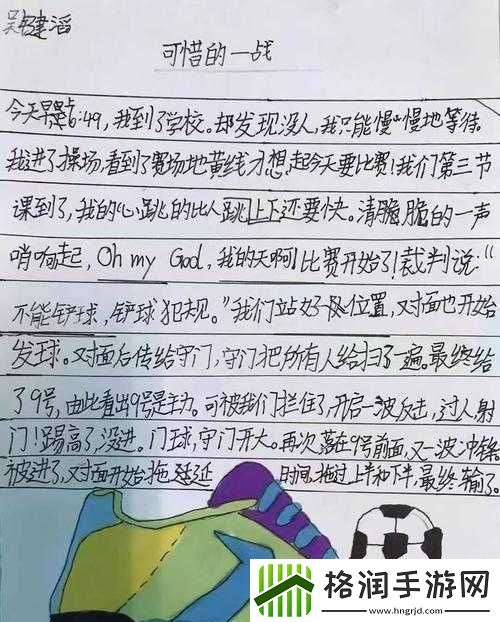 吴建滔
可惜的一战
今天早晨6:49，我到了学校。却发现没人，我只能慢慢地等待。
我进了操场，看到了赛场地黄线才想起今天要比赛！我们第三节
课到了，我的心跳的比人跳上下还要快。清脆脆的一声
哨响起，Oh my God，我的天啊！比赛开始了！裁判说：“
不能铲球，铲球犯规。”我们站好位置，对面也开始
发球。对面后传给守门，守门把所有人给扫了一遍。最终给
了9号，由此看出9号是主力。可被我们拦住了，开启一波反击，过人射
门！踢高了，没进。门球，守门开大。再次落在9号前面，又一波冲锋
被进了，对面开始拖延 时间，拖过上半和下半，最终输了。
格润手游网
www.hngrjd.com